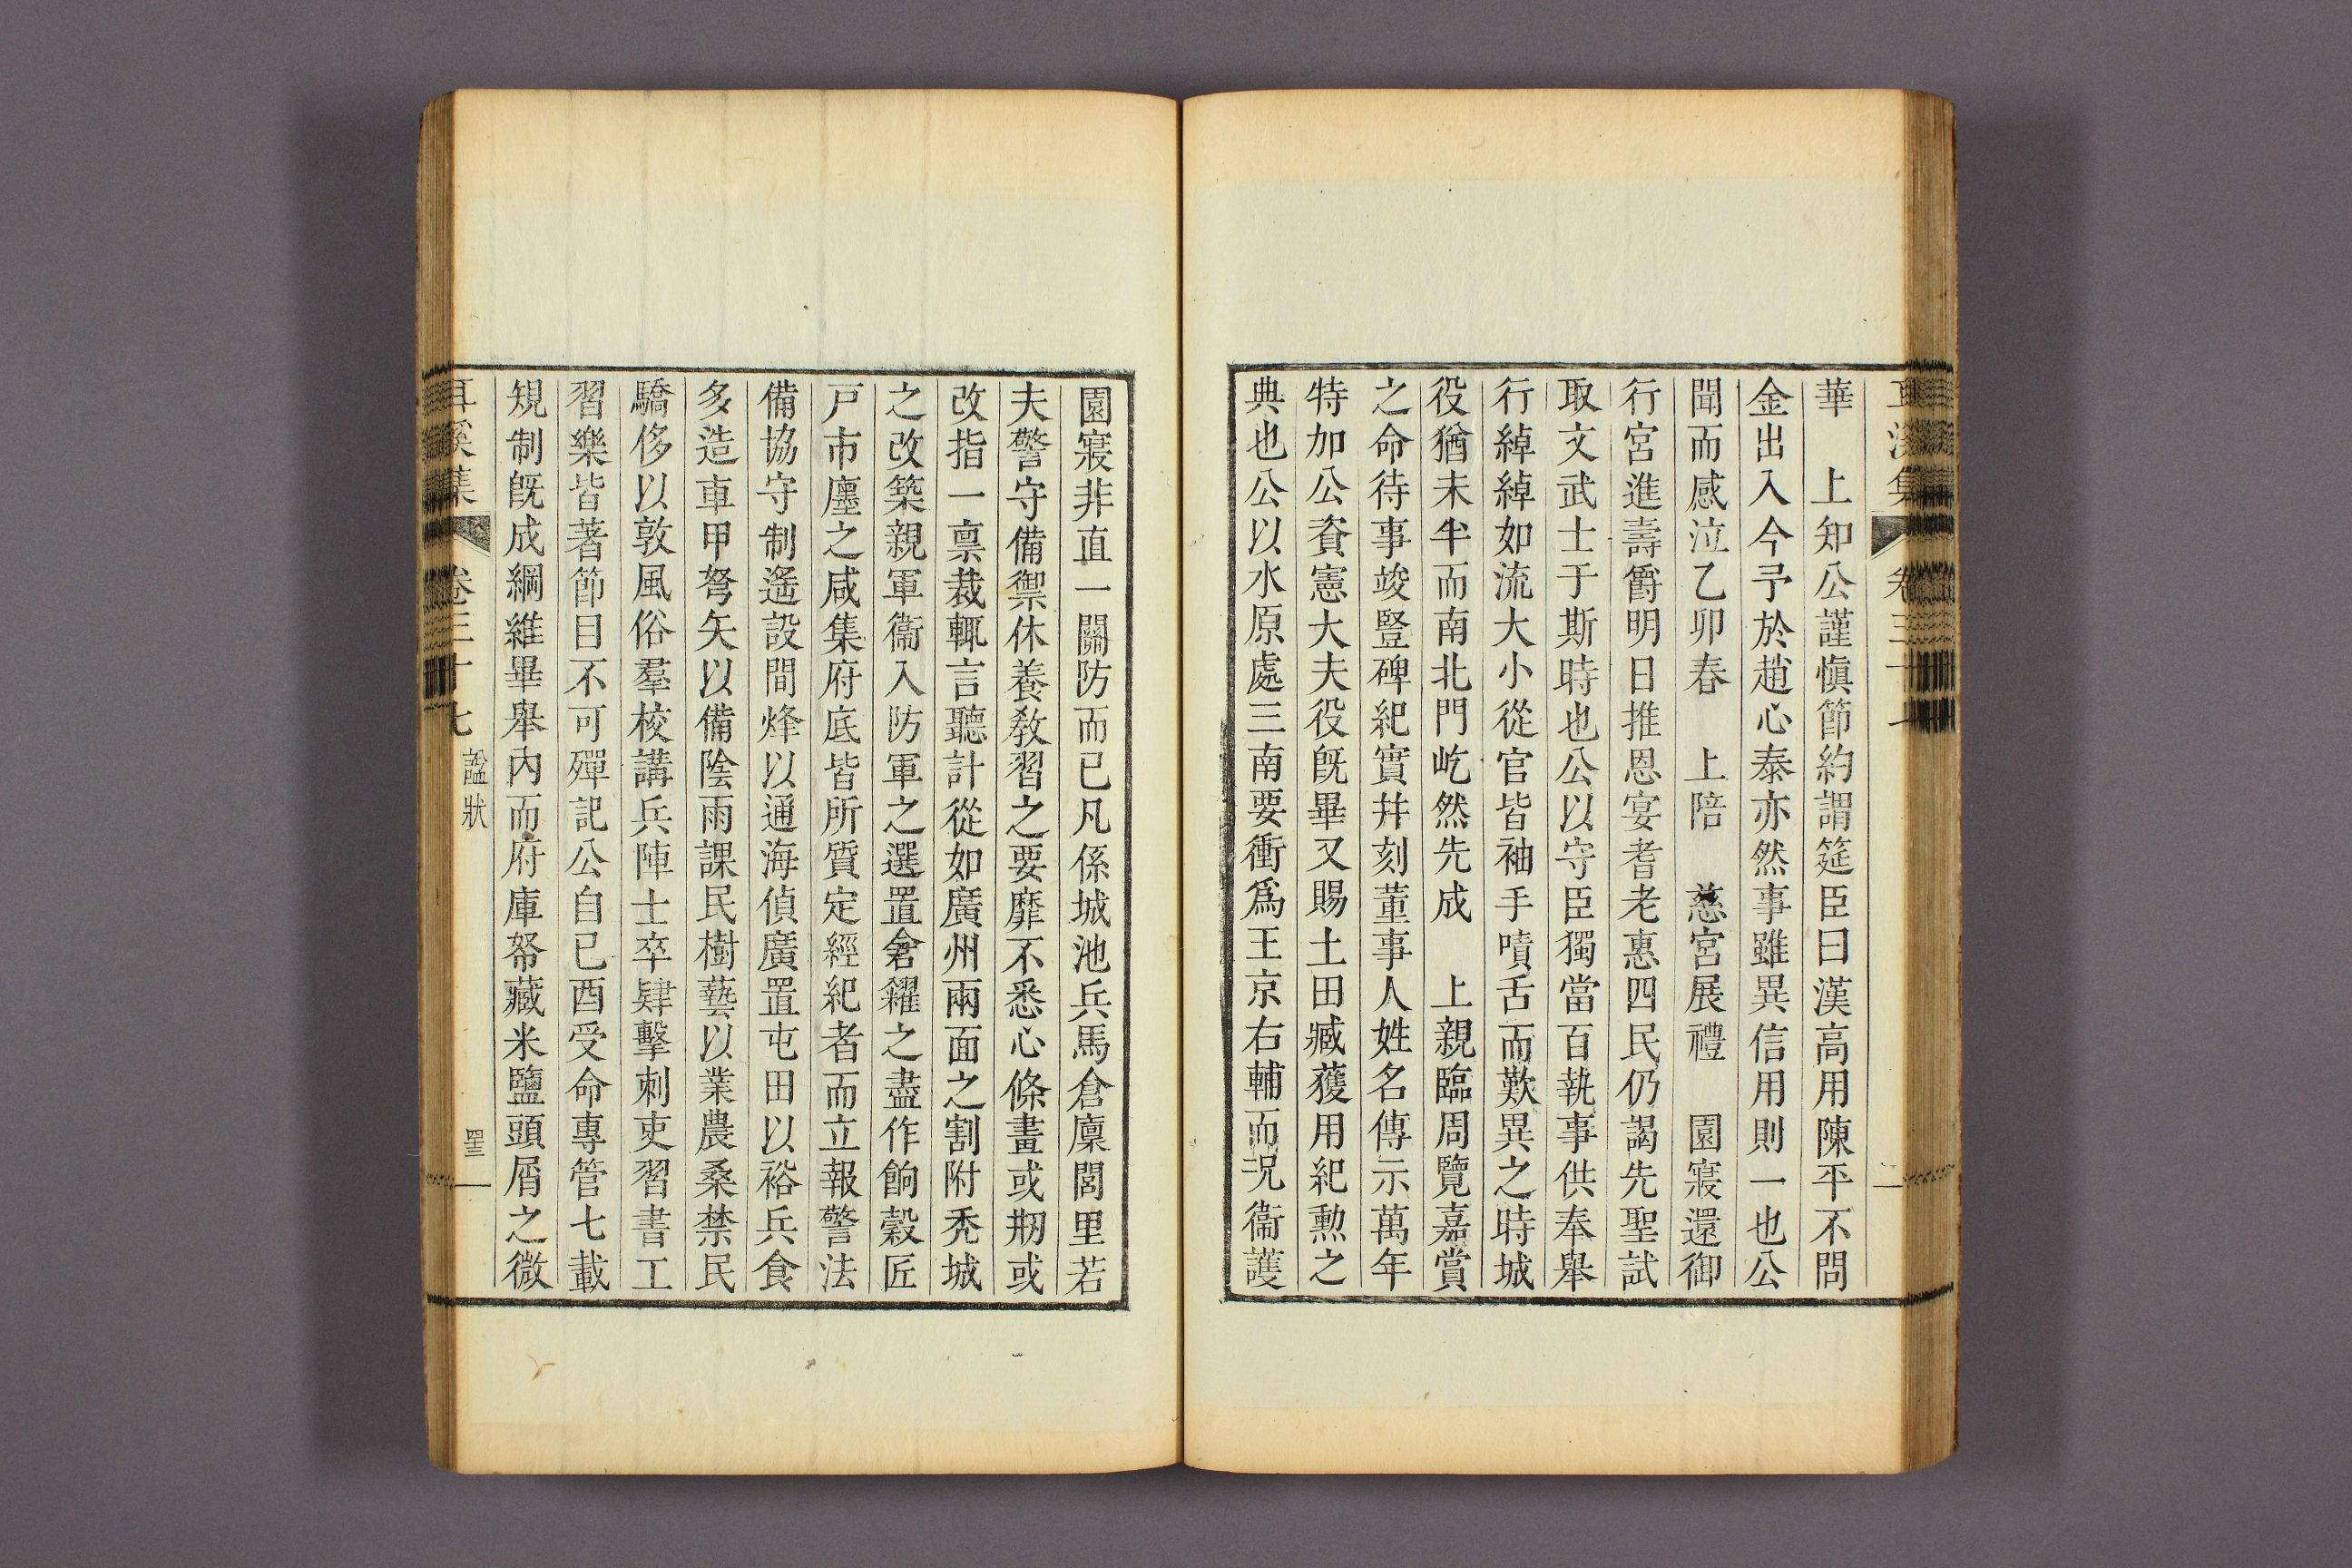 華　上知公謹愼節約謂筵臣曰漢高用陳平不問
金出入今予於趙心泰亦然事雖異信用則一也公
聞而感泣乙卯春　上陪　慈宮展禮　園寢還御
行宮進壽爵明日推恩宴耆老惠四民仍謁先聖試
取文武士于斯時也公以守臣獨當百執事供奉舉
行綽綽如流大小從官皆袖手嘖舌而歎異之時城
役猶未半而南北門屹然先成　上親臨周覽嘉賞
之命待事竣豎碑紀實幷刻董事人姓名傳示萬年
特加公資憲大夫役旣畢又賜土田臧獲用紀勲之
典也公以水原處三南要衝爲王京右輔而况衞護
園寢非直一關防而已凡係城池兵馬倉廩閭里若
夫警守備禦休養敎習之要靡不悉心條畫或刱或
改指一禀裁輒言聽計從如廣州兩面之割附禿城
之改築親軍衞入防軍之選置倉糴之盡作餉穀匠
戶市廛之咸集府底皆所質定經紀者而立報警法
備協守制遙設間烽以通海偵廣置屯田以裕兵食
多造車甲弩矢以備陰雨課民樹藝以業農桑禁民
驕侈以敦風俗羣校講兵陣士卒肄擊刺吏習書工
習樂皆著節目不可殫記公自己酉受命專管七載
規制旣成綱維畢舉內而府庫帑藏米鹽頭屑之微
耳溪集　卷三十七　諡狀